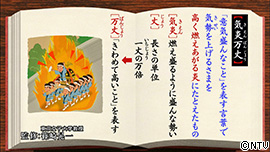 【気炎万丈】
“意気盛んなこと”を表す言葉で
気勢を上げるさまを
高く燃えあがる炎にたとえたもの
【気炎】燃え盛るように盛んな勢い
【丈】
長さの単位
一丈の万倍
【万丈】“きわめて高いこと”を表す
東京女子大学教授
監修:篠崎晃一
©NTV